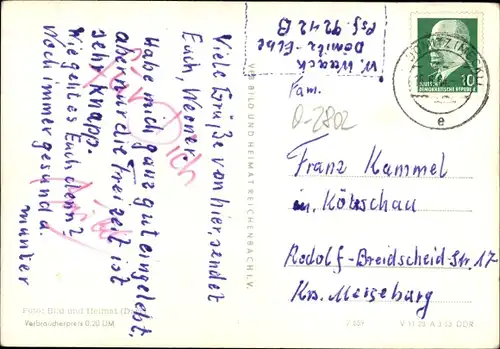 Viele Grüße von hier, sendet
Euch, Werner.
Habe mich ganz gut eingelebt,
aber nur die Freizeit ist
sehr knapp.
Wie geht es Euch denn?
Noch immer gesund u.
munter
für Dich
W. Waack
Dömitz-Elbe
Psf. 9242 B
DÖMITZ
e
10
DEUTSCHE
DEMOKRATISCHE REPUBLIK
Fam.
D-2802
Franz Hammel
in Kötzschau
Rudolf-Breidscheid-Str. 17
Krs. Merseburg
VEB BILD UND HEIMAT REICHENBACH I. V.
Foto: Bild und Heimat
Verbraucherpreis 0,20 DM
V 11 28 A 3 63 DDR